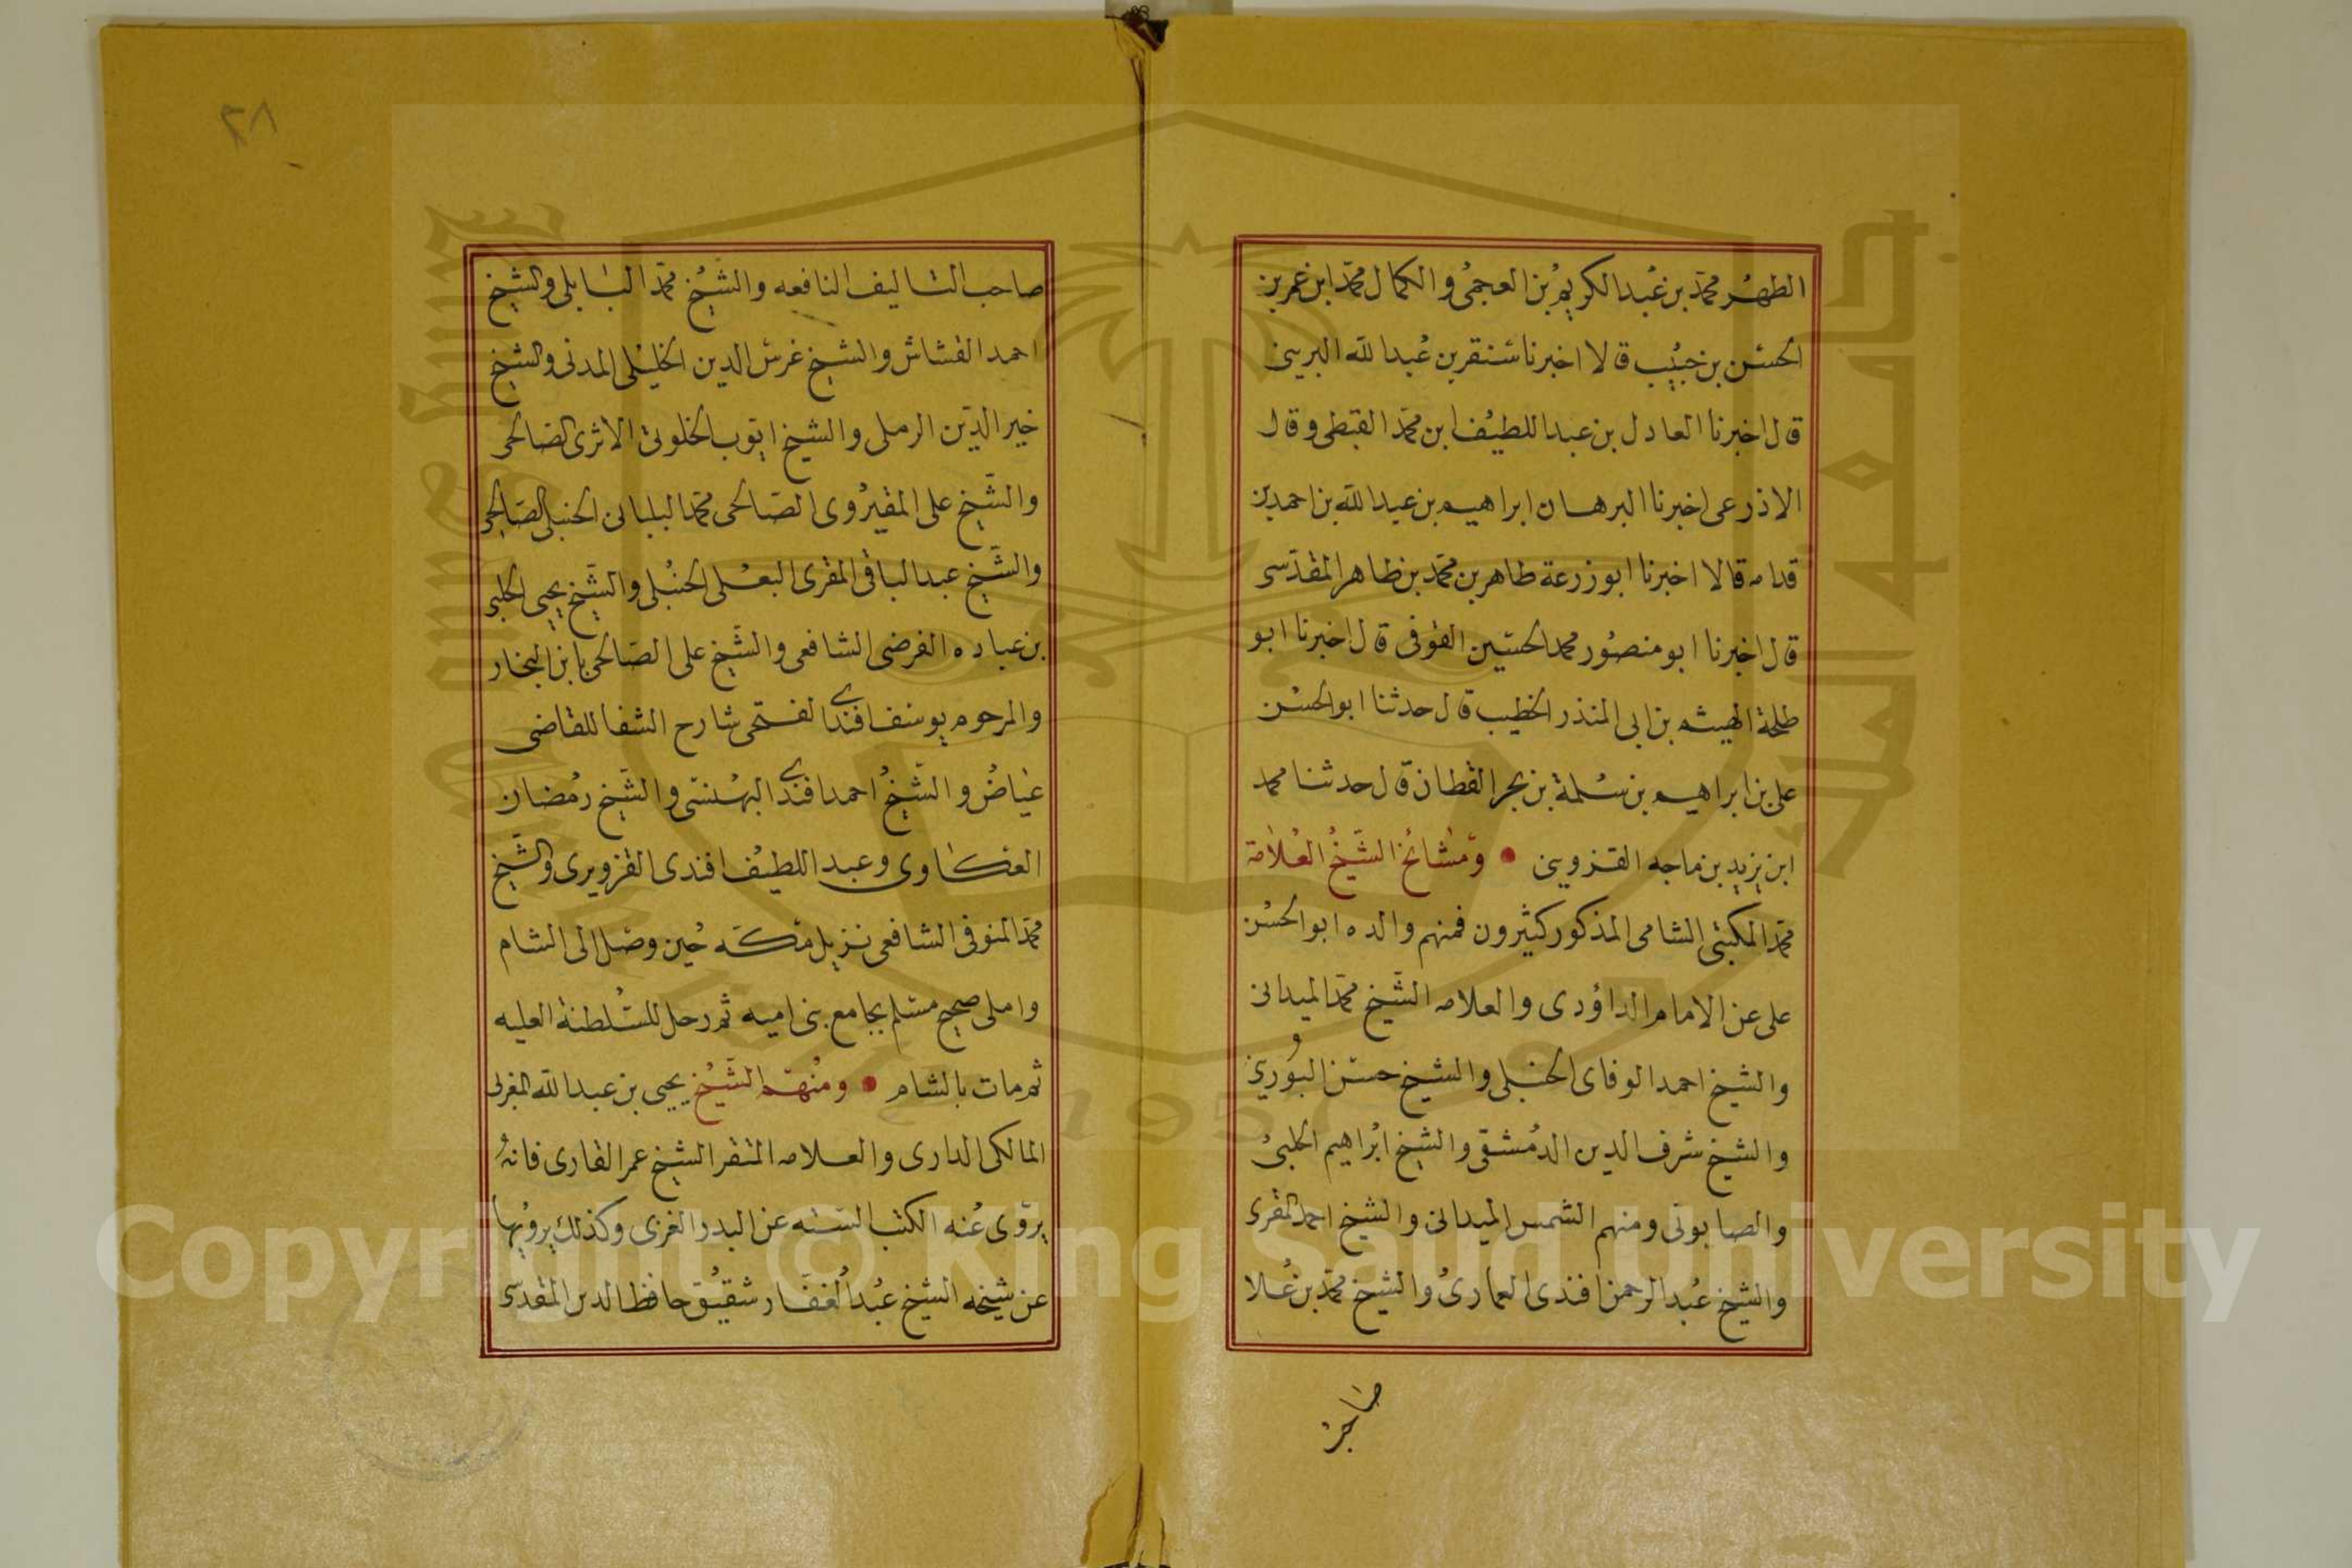 الظهر محمد بن عبد الكريم بن العجمى والكمال محمد ابن عمر بن
الحسن بن حبيب قالا اخبرنا سنقر بن عبد الله البريبى
قال اخبرنا العادل بن عبد اللطيف ابن محمد القبطى وقال
الاذرعى اخبرنا البرهان ابراهيم بن عبد الله بن احمد بن
قدامه قالا اخبرنا ابو زرعة طاهر بن محمد بن طاهر المقدسى
قال اخبرنا ابو منصور محمد الحسين القوفى قال اخبرنا ابو
طلحة الهيثم بن ابى المنذر الخطيب قال حدثنا ابو الحسن
على بن ابراهيم بن سلمة بن بحر القطان قال حدثنا محمد
ابن يزيد بن ماجه القزوينى • ومشائخ الشيخ العلامة
محمد المكتبى الشامى المذكور كثيرون فمنهم والده ابو الحسن
على عن الامام الداؤدى والعلامه الشيخ محمد الميدانى
والشيخ احمد الوفاى الحنبلى والشيخ حسن البورينى
والشيخ شرف الدين الدمشقى والشيخ ابراهيم الحلبى
والصابونى ومنهم الشمس الميدانى والشيخ احمد المقرى
والشيخ عبد الرحمن افندى العمارى والشيخ محمد بن علا
صاحب
٢٨
صاحب التاليف النافعه والشيخ محمد البابلى والشيخ
احمد القشاش والشيخ غرس الدين الخليلى المدنى والشيخ
خير الدين الرملى والشيخ ايوب الخلوتى الاثرى الصالحى
والشيخ على المقيروى الصالحى محمد البلبانى الحنبلى الصالحى
والشيخ عبد الباقى المقرى البعلى الحنبلى والشيخ يحيى الحلبى
بن عباده الفرضى الشافعى والشيخ على الصالحى بابن النجار
والمرحوم يوسف افندى الفتحى شارح الشفا للقاضى
عياض والشيخ احمد افندى البهنسى والشيخ رمضان
العكاوى وعبد اللطيف افندى القزويرى والشيخ
محمد المنوفى الشافعى نزيل مكه حين وصل الى الشام
واملى صحيح مسلم بجامع بنى اميه ثم رحل للسلطنة العليه
ثم مات بالشام • ومنهم الشيخ يحيى بن عبد الله المغربى
المالكى الدارى والعلامه المنقر الشيخ عمر القارى فانه
يروى عنه الكتب السته عن البدر الغزى وكذلك يرويها
عن شيخه الشيخ عبد الغفار شقيق حافظ الدين المقدسى
Copyright © King Saud University
1957